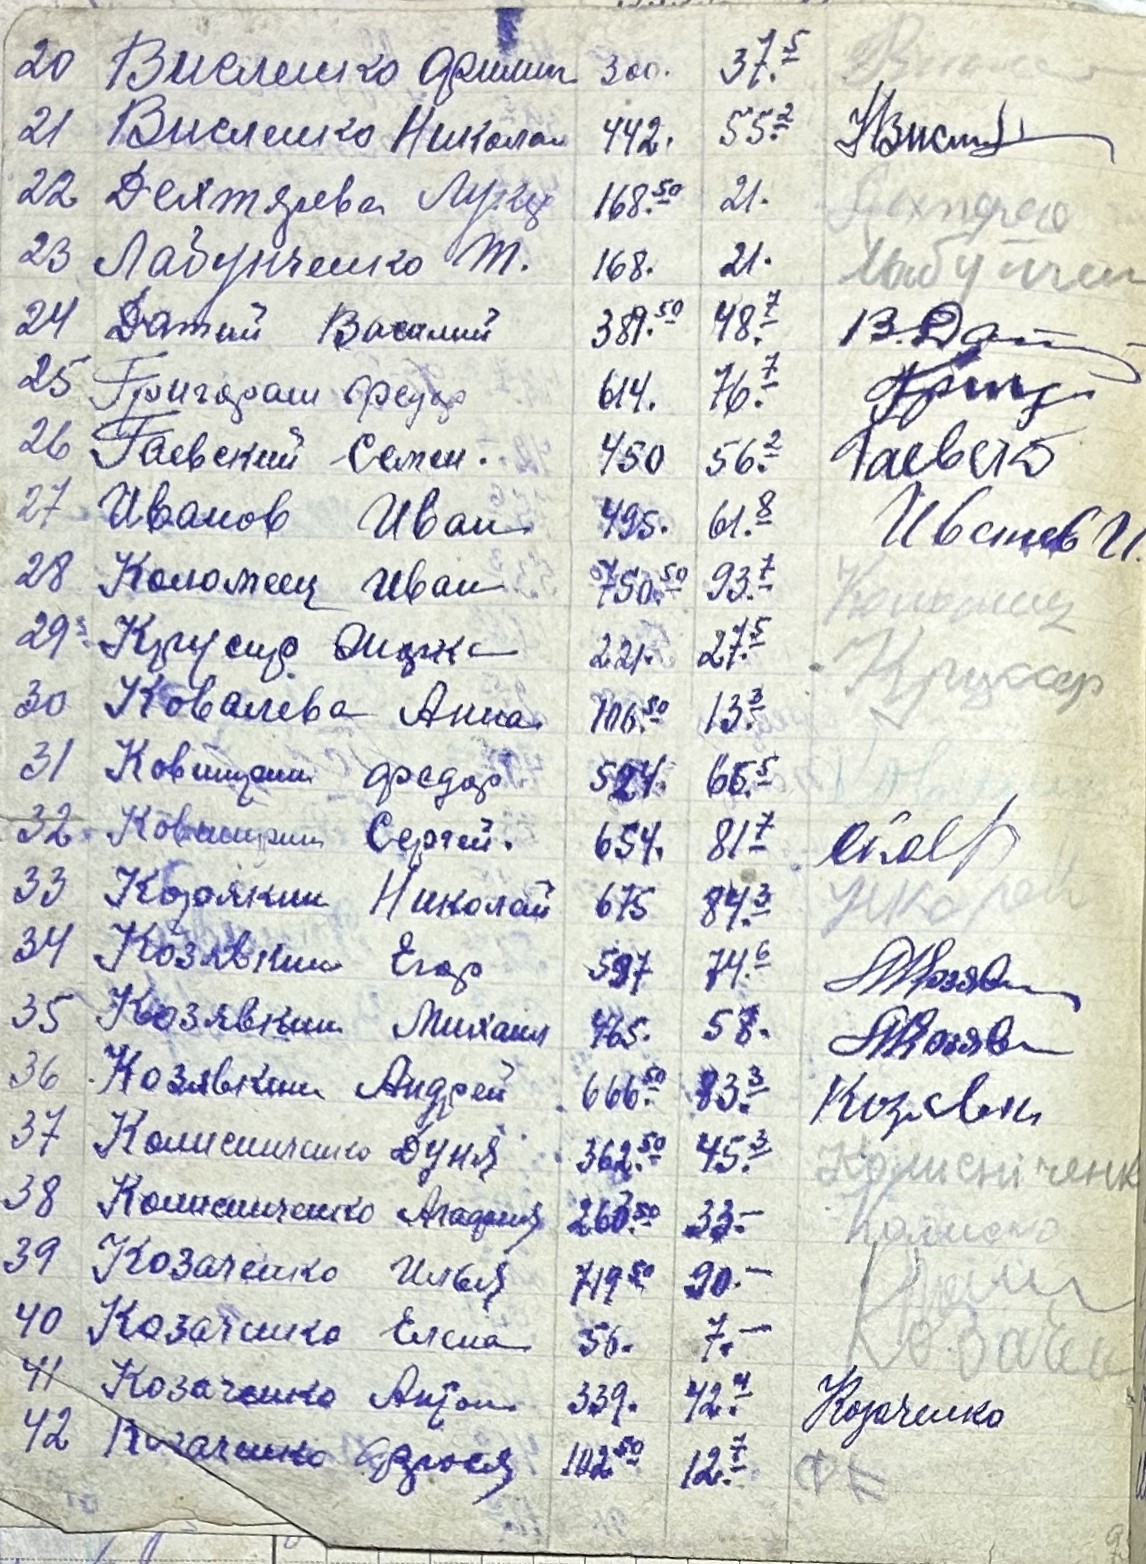 20 Висленко Филипп 300. 37.5
21 Висленко Николай 442. 55.2 НВисл
22 Дехтярева Луц 168.50 21. Дехтярева
23 Лабунченко Т. 168. 21. Лабунчен
24 Датий Василий 389.50 48.7 В. Дат
25 Григораш Федор 614. 76.7 Григ
26 Гаевский Семен. 450 56.2 Гаевск
27 Иванов Иван 495. 61.8 Иванов И.
28 Коломиец Иван 750.50 93.7 Коломиец
29 Крусир 221. 27.5
30 Ковалева Анна 106.50 13.3
31 Федор 524. 65.5
32 Сергей. 654. 81.7
33 Козявкин Николай 675 84.3 Николай
34 Козявкин Егор 597 74.6 Козяв
35 Козявкин Михаил 465. 58. Козяв
36 Козявкин Андрей 666.50 83.3 Козявкин
37 Колисниченко Дуня 362.50 45.3 Колисніченк
38 Колисниченко Агафия 260.50 33.- Колиснo
39 Козаченко Илья 719.50 90.-
40 Козаченко Елена 56. 7.- Козачен
41 Козаченко Антон 339. 42.4 Козаченко
42 Козаченко Фрося 102.50 12.7